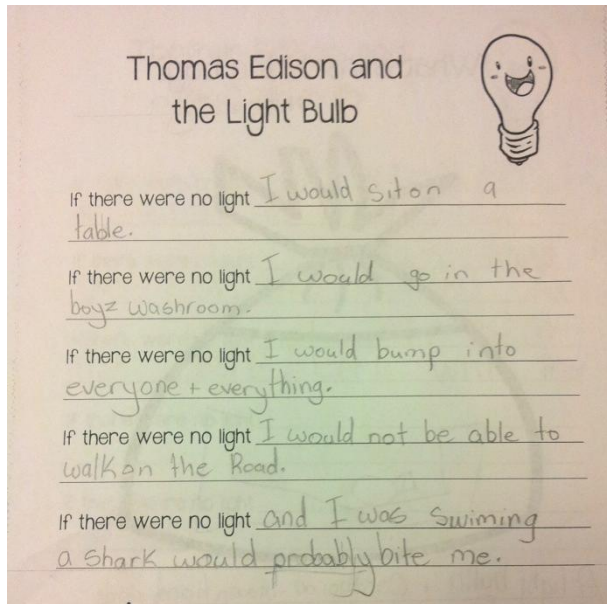 Thomas Edison and
the Light Bulb
If there were no light I would sit on a
table.
If there were no light I would go in the
boyz washroom.
If there were no light I would bump into
everyone + everything.
If there were no light I would not be able to
walk on the Road.
If there were no light and I was swiming
a shark would probably bite me.